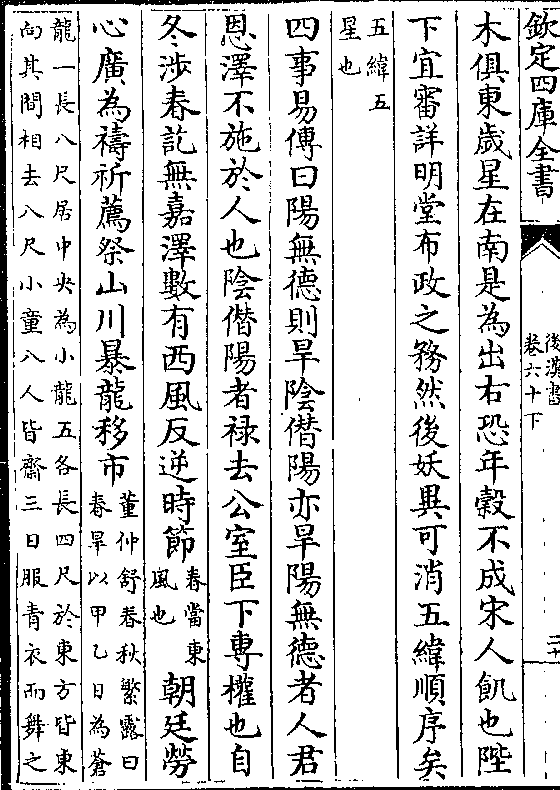 欽定四庫全書
後漢書
卷六十下
二十
木俱東歲星在南是為出右恐年穀不成宋人飢也陛
下宜審詳明堂布政之務然後妖異可消五緯順序矣
五緯五
星也
四事易傳曰陽無德則旱陰僭陽亦旱陽無德者人君
恩澤不施於人也陰僭陽者禄去公室臣下專權也自
冬涉春訖無嘉澤數有西風反逆時節
春當東
風也
朝廷勞
心廣為禱祈薦祭山川暴龍移市
董仲舒春秋繁露曰
春旱以甲乙日為蒼
龍一長八尺居中央為小龍五各長四尺於東方皆東
向其間相去八尺小童八人皆齋三日服青衣而舞之